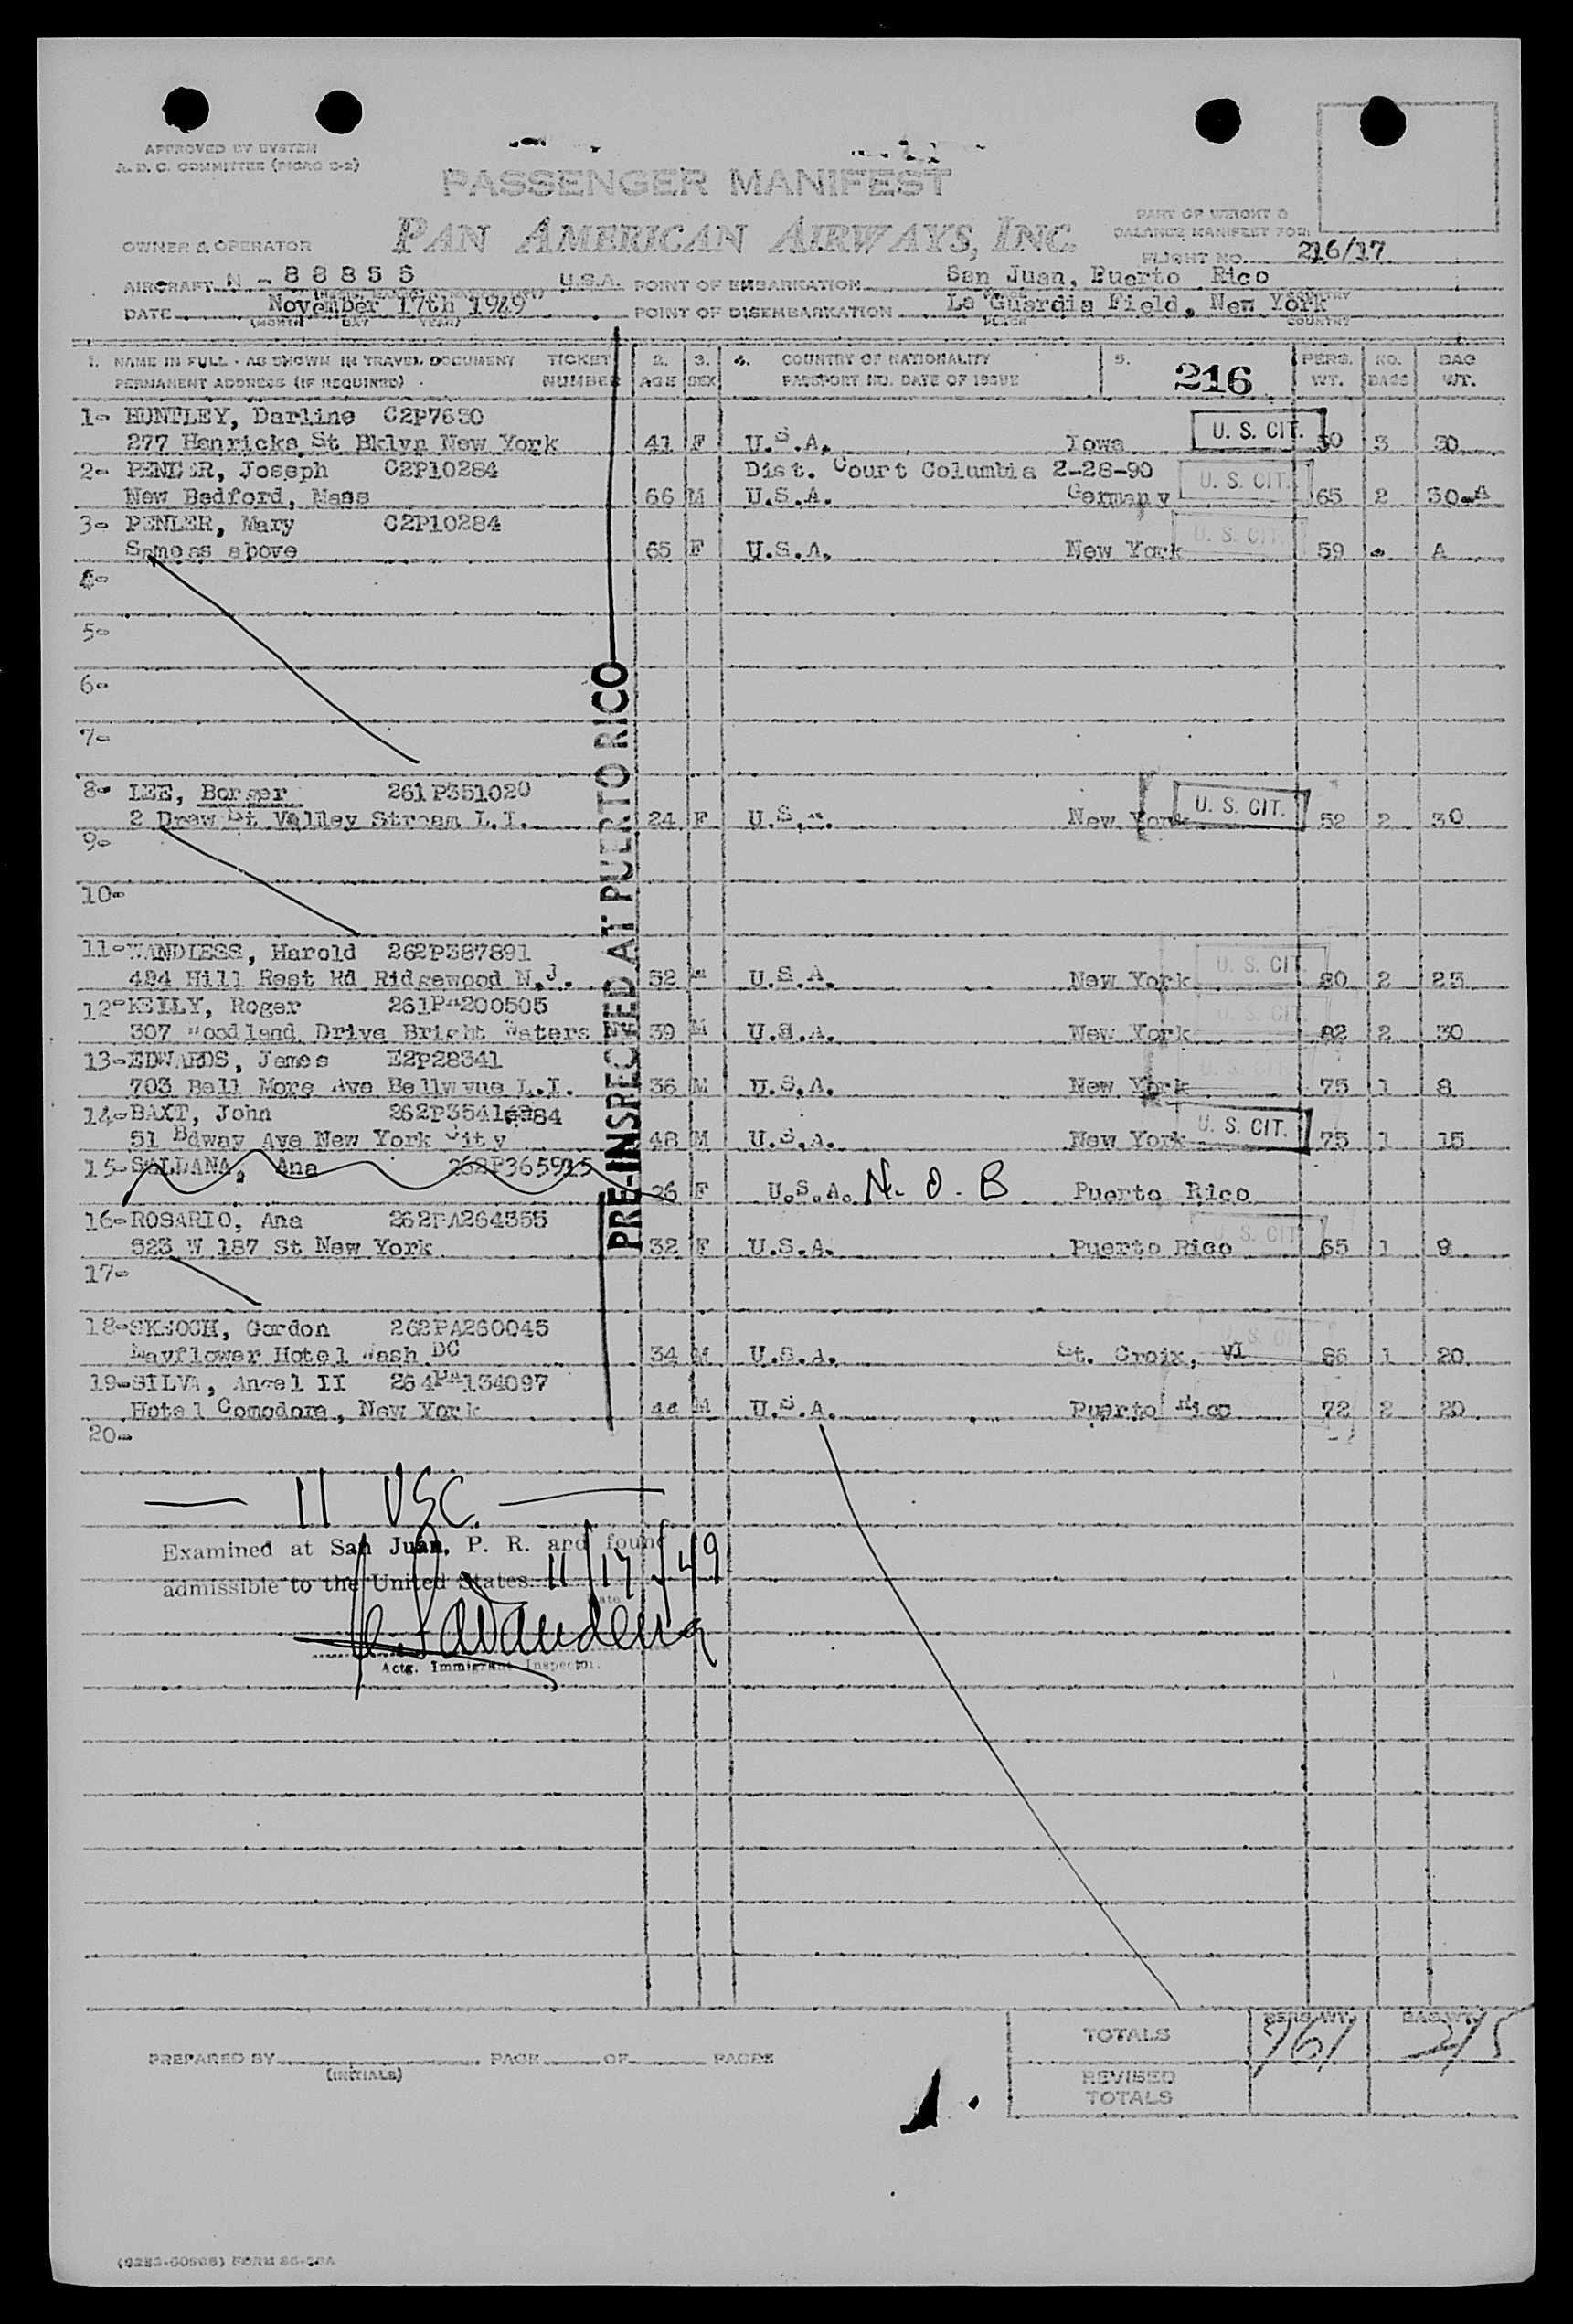 APPROVED BY SYSTEM
A. D. C. COMMITTEE (PICAO C-2)
PASSENGER MANIFEST
PAN AMERICAN AIRWAYS, INC.
PART OF WEIGHT &
BALANCE MANIFEST FOR:
OWNER & OPERATOR
FLIGHT NO. 216/17
AIRCRAFT N - 88855 U.S.A. POINT OF EMBARKATION San Juan, Puerto Rico
DATE November 17th 1949 POINT OF DISEMBARKATION La Guardia Field, New York
(MONTH DAY YEAR) PLACE COUNTRY
1. NAME IN FULL - AS SHOWN IN TRAVEL DOCUMENT TICKET 2. 3. 4. COUNTRY OF NATIONALITY 5. 216 PERS. NO. BAG
PERMANENT ADDRESS (IF REQUIRED) NUMBER AGE SEX PASSPORT NO. DATE OF ISSUE WT. BAGS WT.
1- HUNTLEY, Darline C2P7630
277 Henricks St Bklyn New York 41 F U.S.A. Iowa U. S. CIT. 3 30
2- Joseph C2P10284 Dist. Court Columbia 2-28-90
New Bedford, Mass 66 M U.S.A. Germany U. S. CIT. 65 2 30-A
3- PENLER, Mary C2P10284
Same as above 65 F U.S.A. New York U. S. CIT. 59 - A
4-
5-
6-
7-
8- LEE, Borger 261P351020
2 Drew St Valley Stream L.I. 24 F U.S.A. New York U. S. CIT. 52 2 30
9-
10-
11- WANDLESS, Harold 262P387891
494 Hill Rest Rd Ridgewood N.J. 52 M U.S.A. New York U. S. CIT. 80 2 25
12- KEILY, Roger 261PA200505
307 Woodland Drive Bright Waters NY 39 M U.S.A. New York U. S. CIT. 82 2 30
13- EDWARDS, James E2P28341
703 Bell More Ave Bellwvue L.I. 36 M U.S.A. New York U. S. CIT. 75 1 8
14- BAXT, John 262P3541 84
51 Bdway Ave New York City 48 M U.S.A. New York U. S. CIT. 75 1 15
15- SOLDANA, Ana 262P365915
26 F U.S.A. N. O. B Puerto Rico
16- ROSARIO, Ana 262PA264355
523 W 187 St New York 32 F U.S.A. Puerto Rico U. S. CIT 65 1 9
17-
18- SKEOCH, Gordon 262PA260045
Mayflower Hotel Wash DC 34 M U.S.A. St. Croix, VI U. S. CIT 86 1 20
19- SILVA, Angel II 264PA134097
Hotel Comodore, New York 44 M U.S.A. Puerto Rico 72 2 20
20-
PRE-INSPECTED AT PUERTO RICO
11 USC.
Examined at San Juan, P. R. and found
admissible to the United States 11/17/49
Date
Actg. Immigrant Inspector.
TOTALS PERS. WT. 761 BAG WT. 215
PREPARED BY (INITIALS) PAGE OF PAGES
REVISED
TOTALS